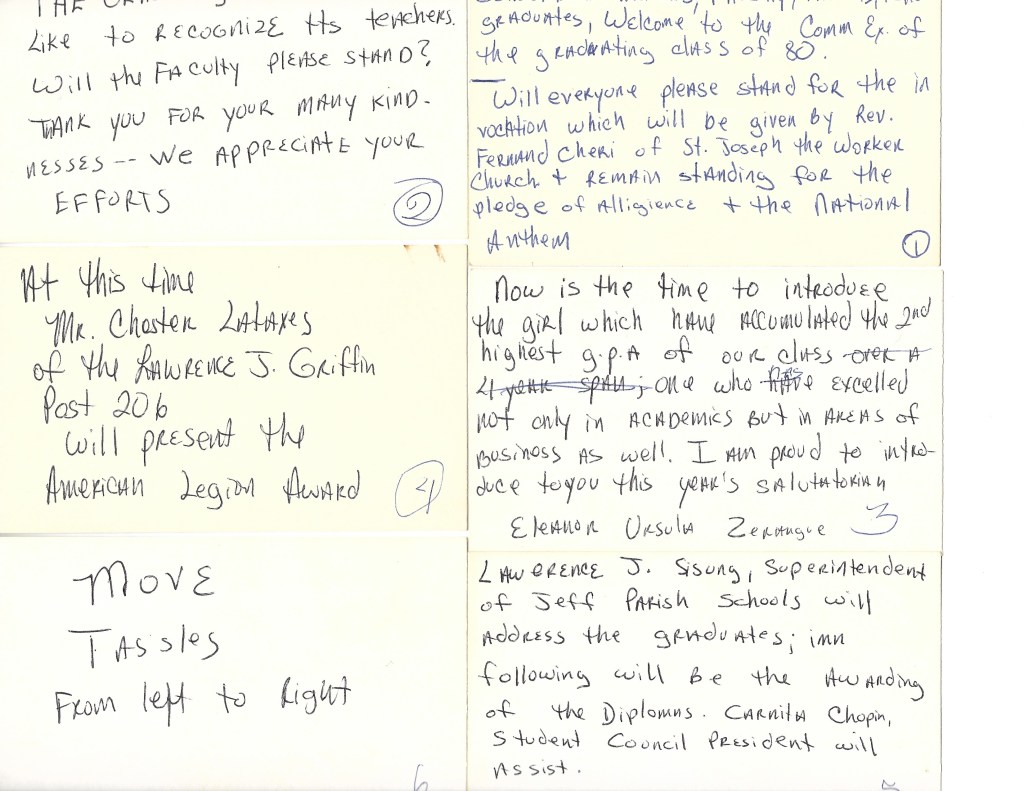 LIKE to RECOGNIZE Its teachers.
Will the FACulty please stAND?
THANK YOU FOR YOUR MANY KIND-
NESSES -- WE APPRECIATE YOUR
EFFORTS
2
GRADUATES, Welcome to the Comm Ex. of
the graduating class of 80.
Will everyone please stand for the in
vocation which will be given by Rev.
FERNAND Cheri of St. Joseph the WORKER
Church + REMAIN standing for the
pledge of Alligience + the National
Anthem
1
At this time
MR. Chaster LATAXES
of the LAWRENCE J. Griffin
Post 206
will present the
American Legion AWARD
4
Now is the time to introduce
the girl which have accumulated the 2nd
highest g.p.A of our class over A
4 year span; one who has excelled
not only in ACADEMICS But in AREAS of
Business As well. I am proud to intro-
duce to you this year's salutatorian
Eleanor Ursula Zerangue
3
MOVE
TAssles
From left to Right
6
LAWERENCE J. Sisung, Superintendent
of Jeff PARISH Schools will
address the graduates; imm
following will Be the AWArding
of the Diplomas. CARNITA Chopin,
Student Council President will
Assist.